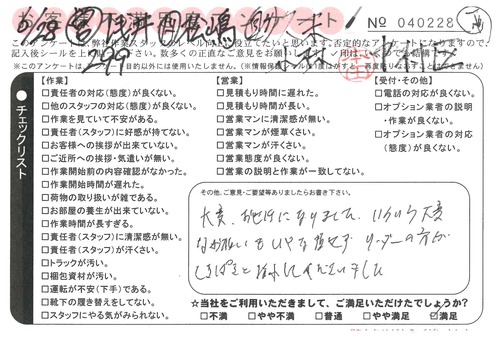 № 040228
このアンケートは、弊社作業スタッフのレベル
※このアンケートは
チェックリスト
【作業】
□責任者の対応(態度)が良くない。
□他のスタッフの対応(態度)が良くない。
□作業を見ていて不安がある。
□責任者(スタッフ)に好感が持てない。
□お客様への挨拶が出来ていない。
□ご近所への挨拶・気遣いが無い。
□作業開始前の内容確認がなかった。
□作業開始時間が遅れた。
□荷物の取り扱いが雑である。
□お部屋の養生が出来ていない。
□作業時間が長すぎる。
□責任者(スタッフ)に清潔感が無い。
□責任者(スタッフ)が汗くさい。
□トラックが汚い。
□梱包資材が汚い。
□運転が不安(下手)である。
□靴下の履き替えをしてない。
□スタッフにやる気がみられない。
【営業】
□見積もり時間に遅れた。
□見積もり時間が長い。
□営業マンに清潔感が無い。
□営業マンが煙草くさい。
□営業マンが汗くさい。
□営業態度が良くない。
□営業の説明と作業が一致してない。
【受付・その他】
□電話の対応が良くない。
□オプション業者の説明
・作業が良くない。
□オプション業者の対応
(態度)が良くない。
その他、ご意見・ご要望等ありましたらお書き下さい。
大変、お世話になりました。いろいろ大変
なお願いもいやな顔せず リーダーの方が
てきぱきと
くださいました
☆当社をご利用いただきまして、ご満足いただけたでしょうか?
□不満 □やや不満 □普通 □やや満足 □満足